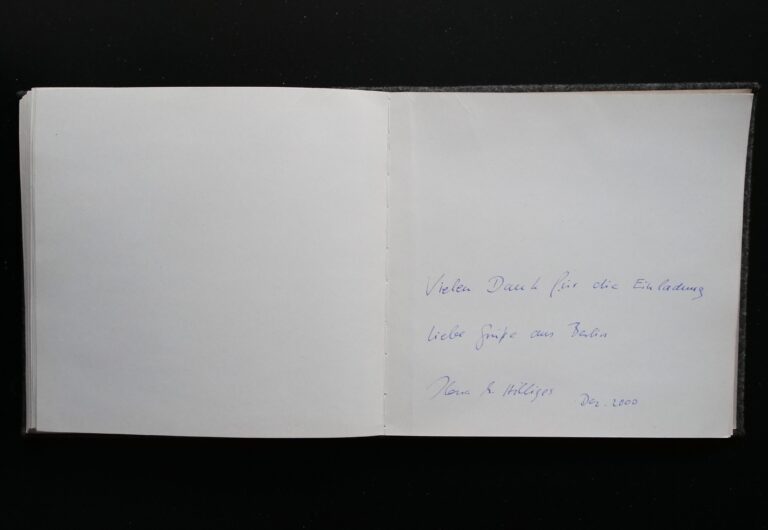 Vielen Dank für die Einladung
liebe Grüße aus Berlin
Dez. 2000